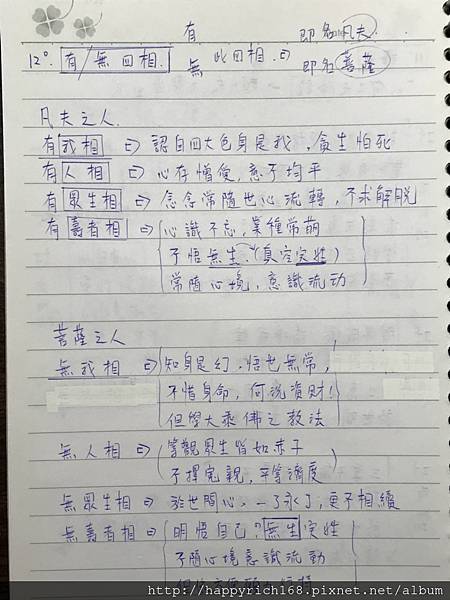 有 即名凡夫.
12°. 有/無四相. 無 此四相. ⇨ 即名菩薩
凡夫之人.
有我相 ⇨ 認自四大色身是我, 貪生怕死
有人相 ⇨ 心存憎愛, 意不均平
有眾生相 ⇨ 念念常隨世心流轉, 不求解脫
有壽者相 ⇨ 心識不忘, 業種常萌
不悟無生. (真空实性)
常隨心境, 意識流动
菩薩之人
無我相 ⇨ 知身是幻, 悟世無常,
不惜身命, 何況資財!
但學大乘佛之教法
無人相 ⇨ 等觀眾生皆如赤子
不擇冤親, 平等濟度
無眾生相 ⇨ 於世間心、一了永了, 更不相續
無壽者相 ⇨ 明悟自己? 無生实性
不隨心境意識流动
http://happyrich168.pixnet.net/album